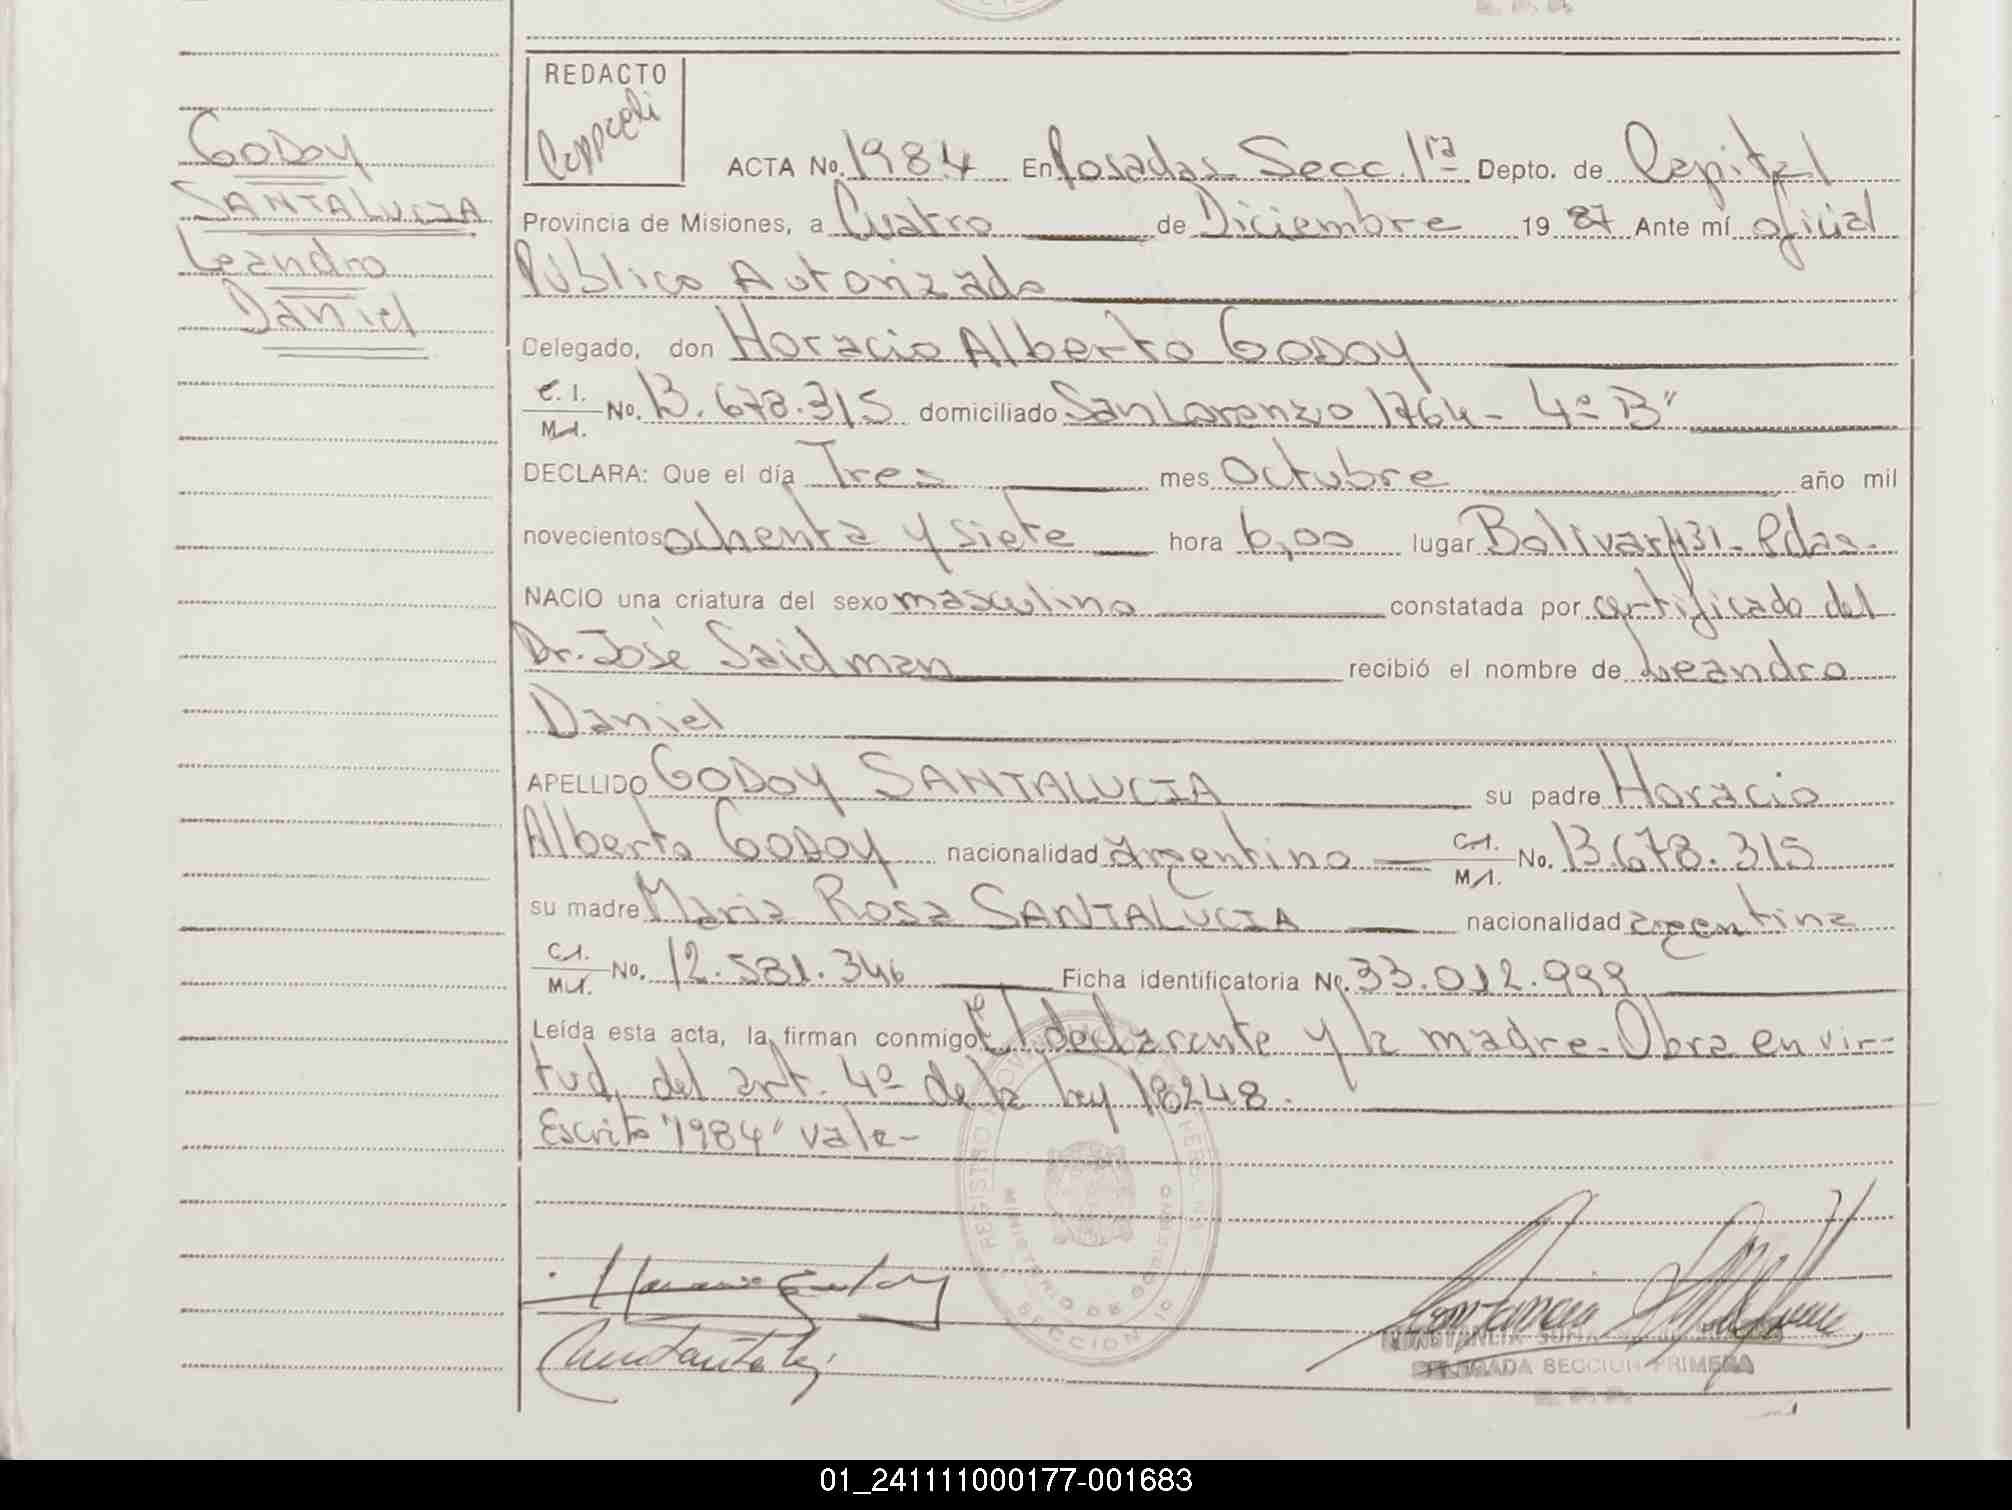 GODOY
SANTALUCIA
Leandro
Daniel
REDACTO
ACTA No. 1984 En Posadas Secc. 1ra Depto. de Capital
Provincia de Misiones, a Cuatro de Diciembre 19 87 Ante mí oficial
Público Autorizado
Delegado, don Horacio Alberto GODOY
C.I. M.I. No. 13.678.315 domiciliado San Lorenzo 1764 - 4º "B"
DECLARA: Que el día Tres mes Octubre año mil
novecientos ochenta y siete hora 6,00 lugar Bolivar 1131 - Pdas.
NACIO una criatura del sexo masculino constatada por certificado del
Dr. José Saidman recibió el nombre de Leandro
Daniel
APELLIDO GODOY SANTALUCIA su padre Horacio
Alberto GODOY nacionalidad argentino C.I. M.I. No. 13.678.315
su madre Maria Rosa SANTALUCIA nacionalidad argentina
C.I. M.I. No. 12.581.346 Ficha identificatoria No. 33.012.999
Leída esta acta, la firman conmigo El declarante y la madre. Obra en vir-
tud del art. 4º de la ley 18248.
Escrito "1984" vale-
REGISTRO PROV. DE LAS PERSONAS
MINISTERIO DE GOBIERNO
SECCION 1º
CONSTANCIA
DELEGADA SECCION PRIMERA
01_241111000177-001683